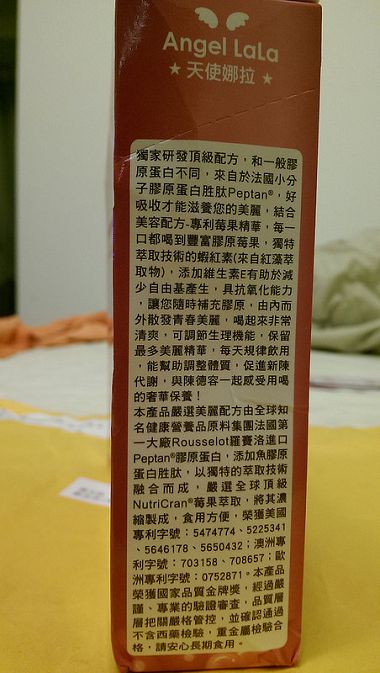 Angel LaLa
★天使娜拉★
獨家研發頂級配方，和一般膠
原蛋白不同，來自於法國小分
子膠原蛋白胜肽Peptan®，好
吸收才能滋養您的美麗，結合
美容配方-專利莓果精華，每一
口都喝到豐富膠原莓果，獨特
萃取技術的蝦紅素(來自紅藻萃
取物)，添加維生素E有助於減
少自由基產生，具抗氧化能力
，讓您隨時補充膠原，由內而
外散發青春美麗，喝起來非常
清爽，可調節生理機能，保留
最多美麗精華，每天規律飲用
，能幫助調整體質，促進新陳
代謝，與陳德容一起感受用喝
的奢華保養！
本產品嚴選美麗配方由全球知
名健康營養品原料集團法國第
一大廠Rousselot羅賽洛進口
Peptan®膠原蛋白，添加魚膠原
蛋白胜肽，以獨特的萃取技術
融合而成，嚴選全球頂級
NutriCran®莓果萃取，將其濃
縮製成，食用方便，榮獲美國
專利字號：5474774、5225341
、5646178、5650432；澳洲專
利字號：703158、708657；歐
洲專利字號：0752871。本產品
榮獲國家品質金牌獎，經過嚴
謹、專業的驗證審查，品質層
層把關嚴格管控，並確認通過
不含西藥檢驗，重金屬檢驗合
格，請安心長期食用。